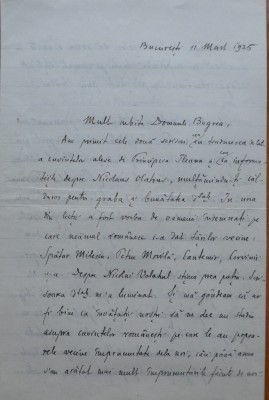 București 17 Mart 1925
Mult iubite Domnule Bogrea,
Am primit cele două scrisori, cu traducerea d-tal
a cuvintelor alese de Principesa Ileana, cu informa-
țiile despre Nicolaus Olahus, mulțămindu-ți căl-
duros pentru graba și bunătatea d-tale. In una
din liste a fost vorba de oameni însemnați pe
care neamul românesc i-a dat țărilor vecine:
Spătar Milescu, Petru Movilă, Cantemir, Corvinii
ș. a. Despre Nicolae Valahul știam prea puțin. Scri-
soarea d-tale m'a luminat. Și mă gândeam că ar
fi bine ca învățații noștri să ne dea un studiu
asupra cuvintelor românești pe care le au popoa-
rele vecine împrumutate dela noi, căci până acum
s'au arătat mai mult împrumuturile făcute de noi